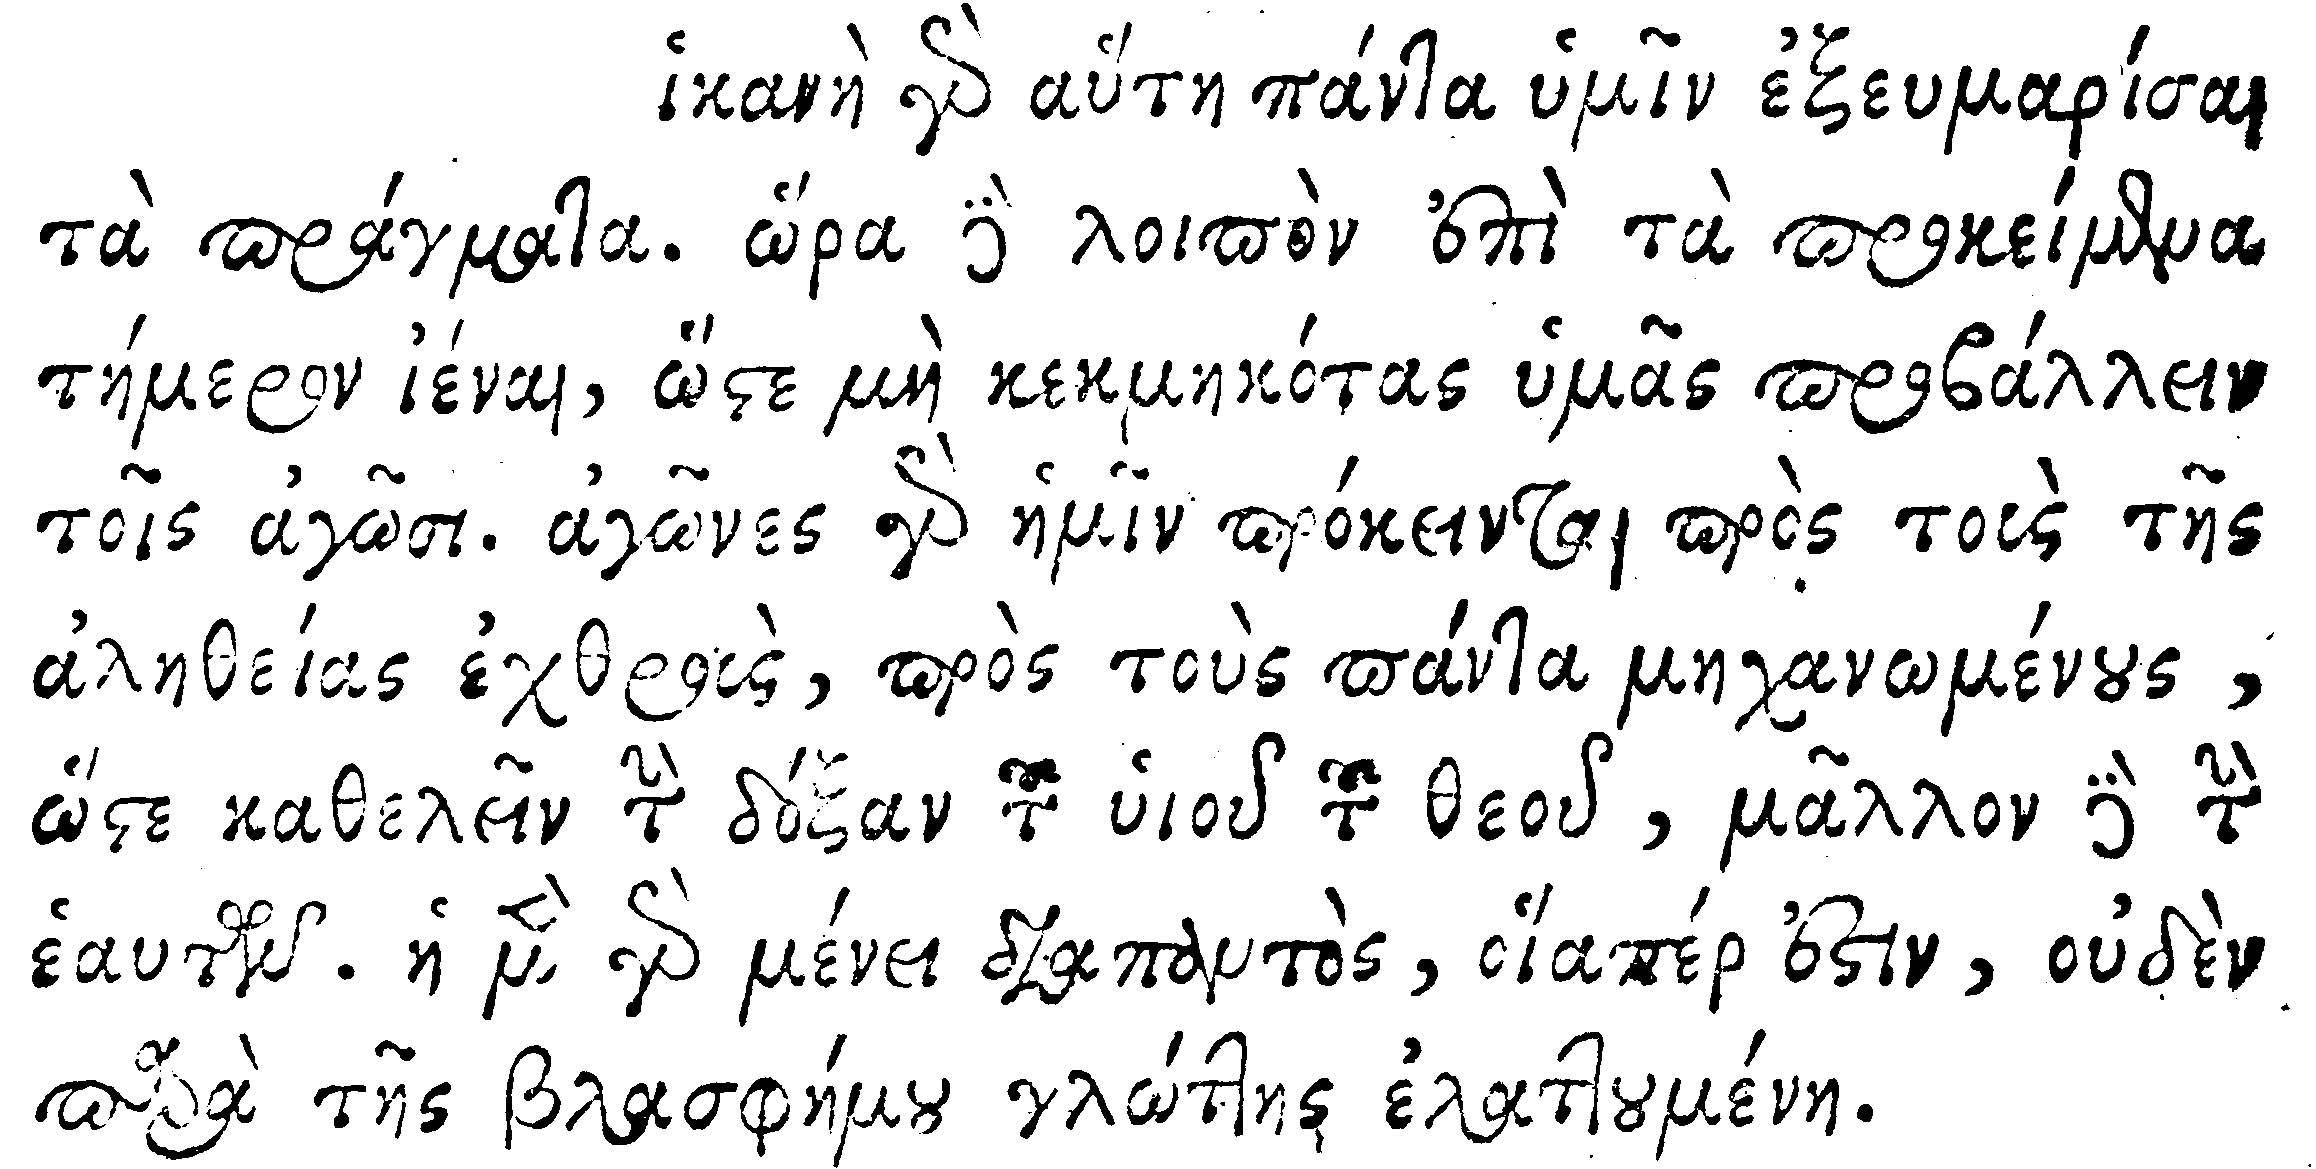 ἱκανὴ γὰρ αὕτη πάντα ὑμῖν ἐξευμαρίσαι
τὰ πράγματα. ὥρα δὲ λοιπὸν ἐπὶ τὰ προκείμενα
τήμερον ἰέναι, ὥστε μὴ κεκμηκότας ὑμᾶς προσβάλλειν
τοῖς ἀγῶσι. ἀγῶνες γὰρ ἡμῖν πρόκεινται πρὸς τοὺς τῆς
ἀληθείας ἐχθροὺς, πρὸς τοὺς πάντα μηχανωμένους,
ὥστε καθελεῖν τὴν δόξαν τοῦ ὑιοῦ τοῦ θεοῦ, μᾶλλον δὲ τὴν
ἑαυτῶν. ἡ μὲν γὰρ μένει διαπαντὸς, οἵαπέρ ἐστιν, οὐδὲν
παρὰ τῆς βλασφήμου γλώττης ἐλαττουμένη.